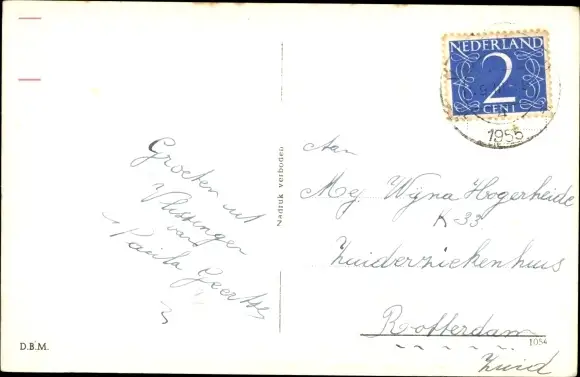 Groeten uit
Vlissingen
van
Paula Geerts
D.B.M.
Nadruk verboden
NEDERLAND
2
CENT
1955
Aan
Mej. Wijna Hogerheide
K-33
Zuiderziekenhuis
Rotterdam
Zuid
1054